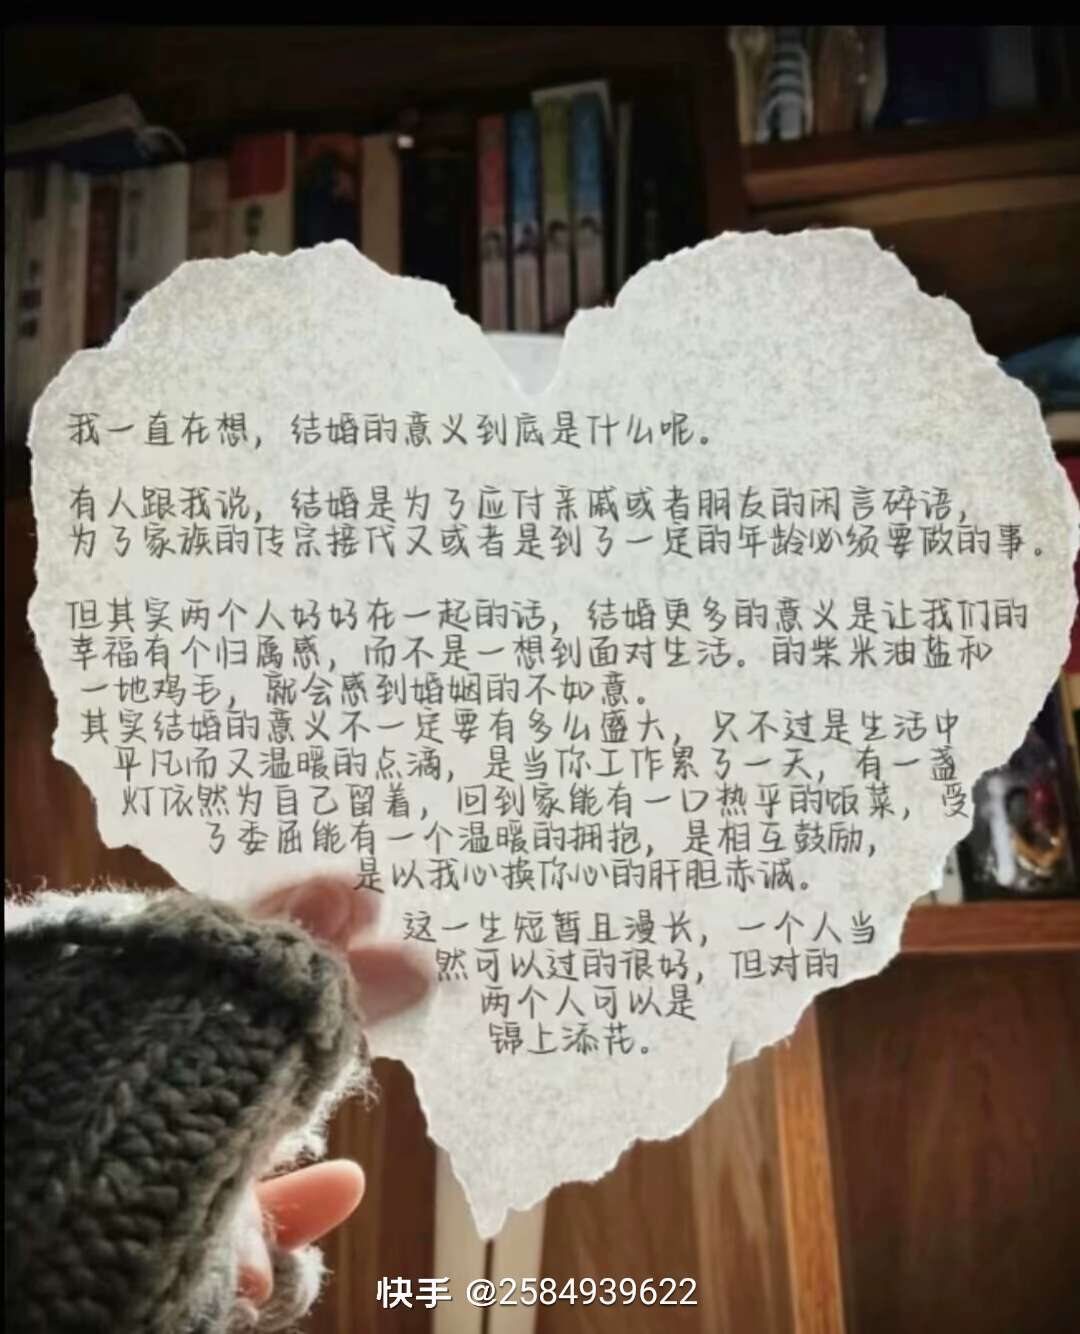 我一直在想，结婚的意义到底是什么呢。
有人跟我说，结婚是为了应付亲戚或者朋友的闲言碎语，
为了家族的传宗接代又或者是到了一定的年龄必须要做的事。
但其实两个人好好在一起的话，结婚更多的意义是让我们的
幸福有个归属感，而不是一想到面对生活。的柴米油盐和
一地鸡毛，就会感到婚姻的不如意。
其实结婚的意义不一定要有多么盛大，只不过是生活中
平凡而又温暖的点滴，是当你工作累了一天，有一盏
灯依然为自己留着，回到家能有一口热乎的饭菜，受
了委屈能有一个温暖的拥抱，是相互鼓励，
是以我心换你心的肝胆赤诚。
这一生短暂且漫长，一个人当
然可以过的很好，但对的
两个人可以是
锦上添花。
快手 @2584939622